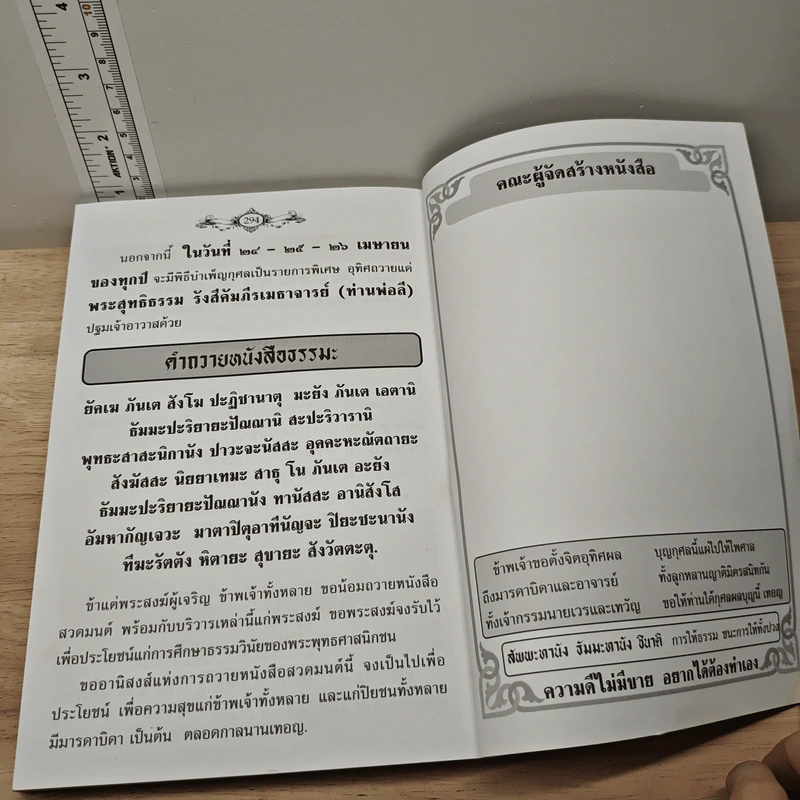 294
นอกจากนี้ ในวันที่ ๒๔ – ๒๕ – ๒๖ เมษายน
ของทุกปี จะมีพิธีบำเพ็ญกุศลเป็นรายการพิเศษ อุทิศถวายแด่
พระสุทธิธรรม รังสีคัมภีรเมธาจารย์ (ท่านพ่อลี)
ปฐมเจ้าอาวาสด้วย
คำถวายหนังสือธรรมะ
ยัคเฆ ภันเต สังโฆ ปะฏิชานาตุ มะยัง ภันเต เอตานิ
ธัมมะปะริยายะปัณณานิ สะปะริวารานิ
พุทธะสาสะนิกานัง ปาวะจะนัสสะ อุคคะหะณัตถายะ
สังฆัสสะ นิยยาเทมะ สาธุ โน ภันเต อะยัง
ธัมมะปะริยายะปัณณานัง ทานัสสะ อานิสังโส
อัมหากัญเจวะ มาตาปิตุอาทีนัญจะ ปิยะชะนานัง
ทีฆะรัตตัง หิตายะ สุขายะ สังวัตตะตุ.
ข้าแต่พระสงฆ์ผู้เจริญ ข้าพเจ้าทั้งหลาย ขอน้อมถวายหนังสือ
สวดมนต์ พร้อมกับบริวารเหล่านี้แก่พระสงฆ์ ขอพระสงฆ์จงรับไว้
เพื่อประโยชน์แก่การศึกษาธรรมวินัยของพระพุทธศาสนิกชน
ขออานิสงส์แห่งการถวายหนังสือสวดมนต์นี้ จงเป็นไปเพื่อ
ประโยชน์ เพื่อความสุขแก่ข้าพเจ้าทั้งหลาย และแก่ปิยชนทั้งหลาย
มีมารดาบิดา เป็นต้น ตลอดกาลนานเทอญ.
คณะผู้จัดสร้างหนังสือ
ข้าพเจ้าขอตั้งจิตอุทิศผล บุญกุศลนี้แผ่ไปให้ไพศาล
ถึงมารดาบิดาและอาจารย์ ทั้งลูกหลานญาติมิตรสนิทกัน
ทั้งเจ้ากรรมนายเวรและเทวัญ ขอให้ท่านได้กุศลผลบุญนี้ เทอญ
สัพพะทานัง ธัมมะทานัง ชินาติ การให้ธรรม ชนะการให้ทั้งปวง
ความดีไม่มีขาย อยากได้ต้องทำเอง
1 2 3 4
3 4 5 6 7 8 9 10